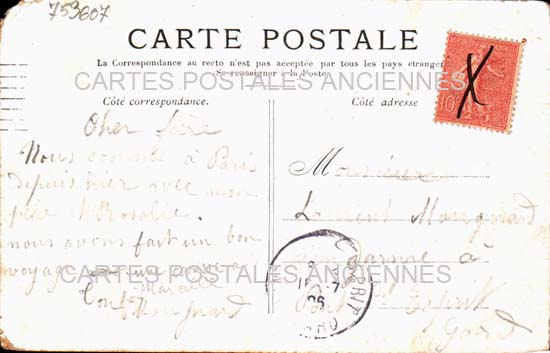 753607
CARTE POSTALE
La Correspondance au recto n'est pas acceptée par tous les pays étrangers
(Se renseigner à la Poste)
CARTES POSTALES ANCIENNES
Côté correspondance.
Côté adresse
10
Cher frère
Nous somme à Paris
depuis hier avec mon
père et Rosalie.
nous avons fait un bon
voyage
Mougnard
Monsieur
Laurent Mougnard
à
Pont St Esprit
Gard
CARTES POSTALES ANCIENNES
ESPRIT